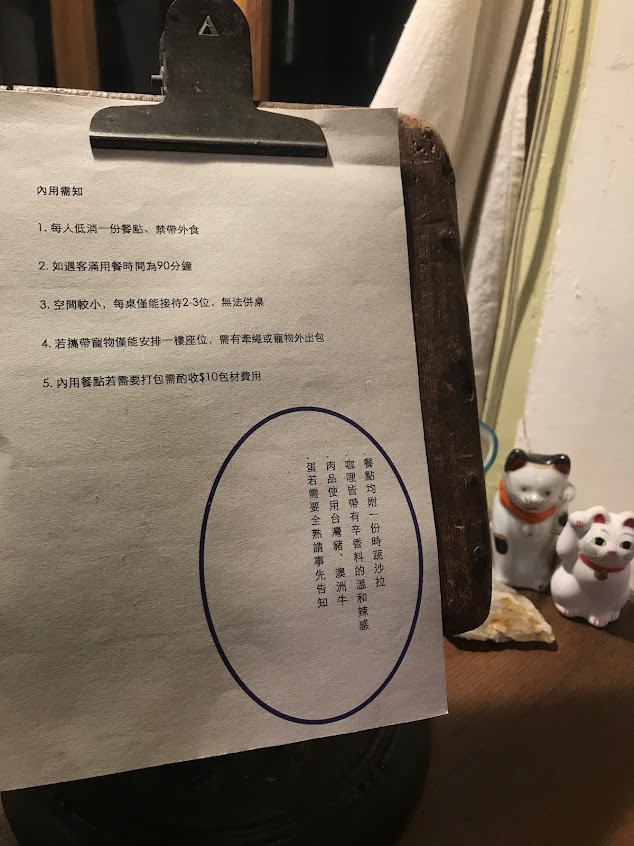 內用需知
1. 每人低消一份餐點、禁帶外食
2. 如遇客滿用餐時間為90分鐘
3. 空間較小，每桌僅能接待2-3位，無法併桌
4. 若攜帶寵物僅能安排一樓座位，需有牽繩或寵物外出包
5. 內用餐點若需要打包需酌收$10包材費用
．餐點均附一份時蔬沙拉
．咖哩皆帶有辛香料的溫和辣感
．肉品使用台灣豬、澳洲牛
．蛋若需要全熟請事先告知